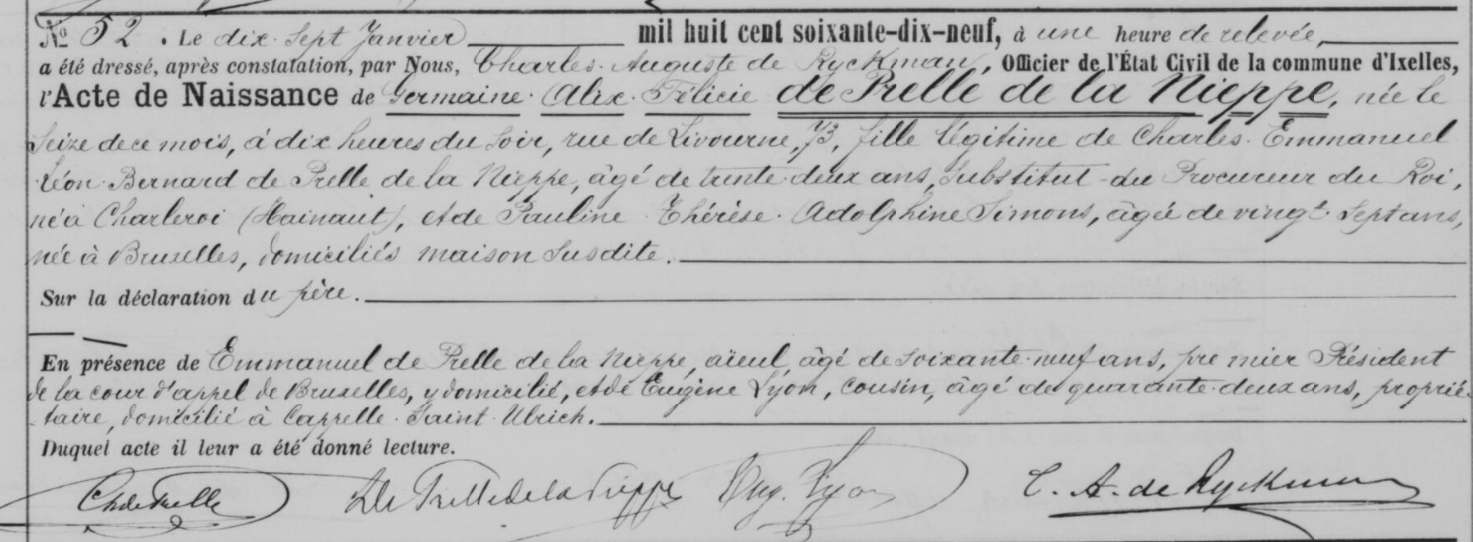 No 52. Le dix-sept Janvier mil huit cent soixante-dix-neuf, à une heure de relevée,
a été dressé, après constatation, par Nous, Charles-Auguste de Ryckman, Officier de l'État Civil de la commune d'Ixelles,
l'Acte de Naissance de Germaine-Alix-Félicie de Prelle de la Nieppe, née le
seize de ce mois, à dix heures du soir, rue de Livourne, 73, fille légitime de Charles-Emmanuel
Léon-Bernard de Prelle de la Nieppe, âgé de trente-deux ans, Substitut-du Procureur du Roi,
né à Charleroi (Hainaut), et de Pauline-Thérèse-Adolphine Simons, âgée de vingt-sept ans,
née à Bruxelles, domiciliés maison susdite.
Sur la déclaration du père.
En présence de Emmanuel de Prelle de la Nieppe, aïeul, âgé de soixante-neuf ans, premier Président
de la cour d'appel de Bruxelles, y domicilié, et de Eugène Lyon, cousin, âgé de quarante-deux ans, proprié-
taire, domicilié à Cappelle-Saint-Ulrich.
Duquel acte il leur a été donné lecture.
Ch de Prelle De Prelle de la Nieppe Eug. Lyon C. A. de Ryckman